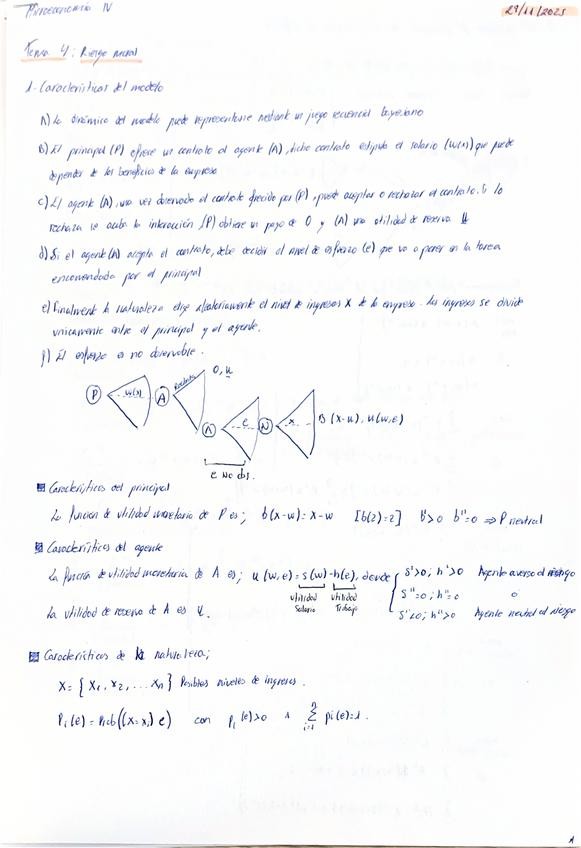 Microeconomía IV
29/11/2023
Tema 4: Riesgo moral
1- Características del modelo
A) La dinámica del modelo puede representarse mediante un juego secuencial bayesiano
B) El principal (P) ofrece un contrato al agente (A), dicho contrato estipula el salario (w(x)) que puede
depender de los beneficios de la empresa
c) El agente (A), una vez observado el contrato ofrecido por (P), puede aceptar o rechazar el contrato. Si lo
rechaza se acaba la interacción, (P) obtiene un pago de 0 y (A) una utilidad de reserva u
d) Si el agente (A) acepta el contrato, debe decidir el nivel de esfuerzo (e) que va a poner en la tarea
encomendada por el principal
e) Finalmente la naturaleza elige aleatoriamente el nivel de ingresos x de la empresa. Los ingresos se divide
unicamente entre el principal y el agente.
f) El esfuerzo es no observable.
P w(x) A Rechazar 0, u
A e N x B (x-w), u(w,e)
e no obs.
Características del principal
La función de utilidad monetaria de P es; b(x-w)=x-w [b(z)=z] b'>0 b''=0 ⇒ P neutral
Características del agente
La función de utilidad monetaria de A es; u(w,e)=s(w)-h(e), donde s'>0; h'>0 Agente averso al riesgo
utilidad salario utilidad trabajo s''=0; h''=0 o
La utilidad de reserva de A es u. s''<0; h''>0 Agente neutral al riesgo
Características de la naturaleza;
X = { x1, x2, ... xn } Posibles niveles de ingresos.
Pi(e) = Prob((x=xi) e) con pi(e)>0 ∧ ∑ i=1 n pi(e)=1.
1